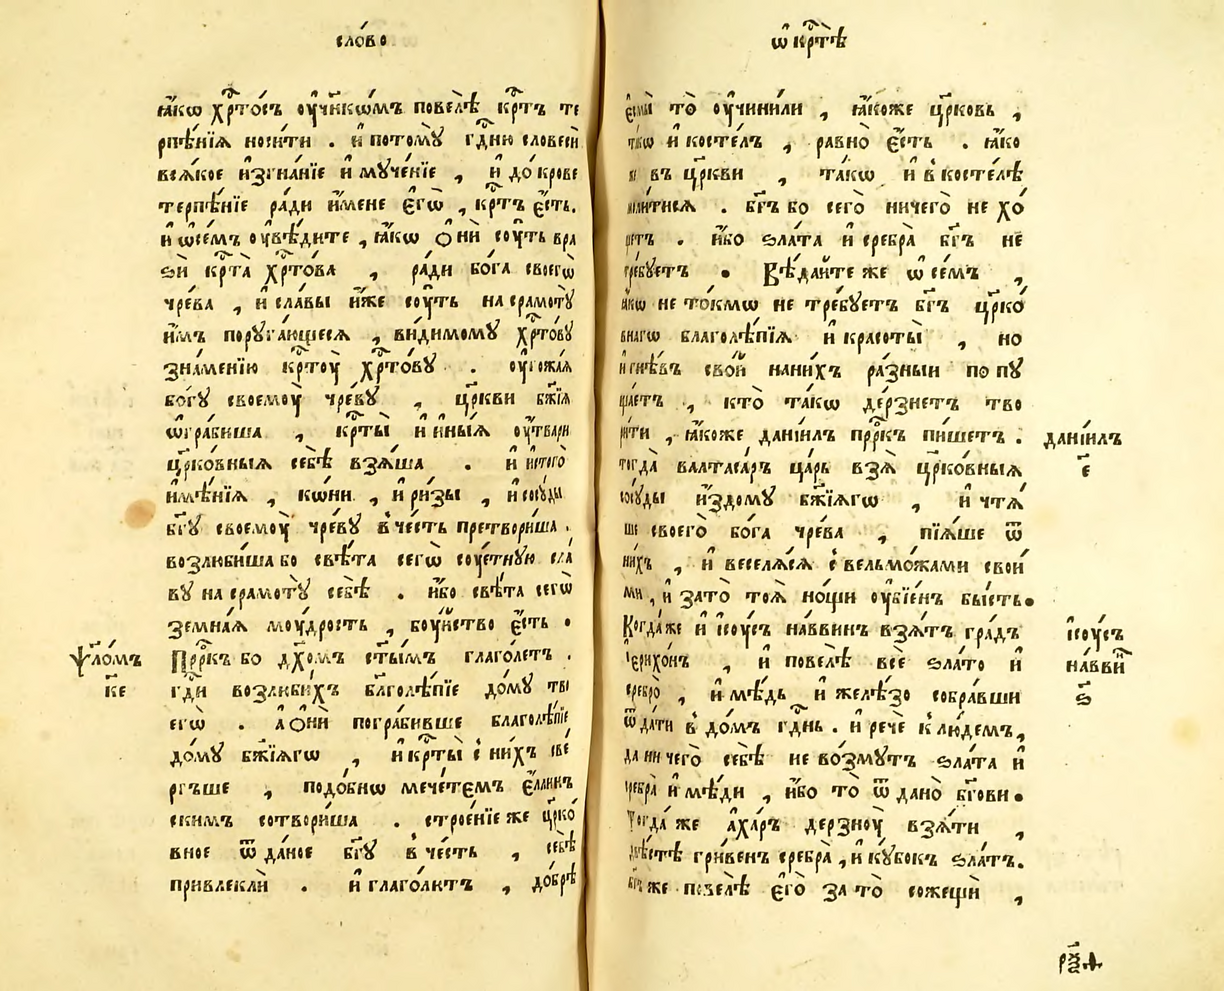 сло́во
ꙗ҆́кѡ хрⷭ҇то́съ ѹ҆чн҃кѡ́мъ повелѣ̀ крⷭ҇тъ те
рпѣ́нїѧ носи́ти . и҆ потомꙋ̀ гдⷭ҇ню словесѝ
всѧ́кое и҆згна́нїе и҆ мꙋче́нїе , и҆ до кро́ве
терпѣ́нїе ра́ди и҆́мене є҆гѡ̀ , крⷭ҇тъ є҆́сть.
и҆ ѡ҆се́мъ ѹ҆вѣ́дите , ꙗ҆́кѡ ѻ҆нѝ сѹ́ть вра
ѕѝ крⷭ҇та̀ хрⷭ҇то́ва , ра́ди бо́га своегѡ̀
чре́ва , и҆ сла́вы и҆́же сѹ́ть на срамотꙋ̀
и҆̀мъ порꙋга́ющесѧ , ви́димомꙋ хрⷭ҇то́вꙋ
зна́менїю крⷭ҇тѹ̀ хрⷭ҇то́вꙋ . ѹ҆гожа́ѧ
бо́гꙋ своемѹ̀ чре́вꙋ , цр҃кви бж҃їѧ
ѡ҆гра́биша , крⷭ҇ты̀ и҆ и҆ны́ѧ ѹ҆́твари
цр҃ко́вныѧ себѣ̀ взѧ́ша . и҆ и҆стого̀
и҆мѣ́нїѧ , кѡ́ни , и҆ ри́зы , и҆ сосꙋ́ды
бг҃ꙋ своемѹ̀ чре́вꙋ в че́сть претвори́ша .
возлюби́ша бо свѣ́та сегѡ̀ сѹ́етнꙋю сла́
вꙋ на срамотꙋ̀ себѣ̀ . и҆́бо свѣ́та сегѡ̀
земна́ѧ мѹ́дрость , бѹ́йство є҆́сть .
Прⷪ҇ркъ бо дх҃омъ ст҃ымъ глаго́летъ .
гдⷭ҇и возлюби́хъ бл҃голѣ́пїе до́мꙋ тво
егѡ̀ . а҆ ѻ҆нѝ погра́бивше благолѣ́пїе
до́мꙋ бж҃їѧгѡ , и҆ крⷭ҇ты̀ с ни́хъ све́
ргъше , подо́бнѡ мече́темъ є҆́ллинъ
скимъ сотвори́ша . строе́нїе же цр҃ко́
вное ѿ да́ное бг҃ꙋ в че́сть , себѣ̀
привлеклѝ . и҆ глаго́лютъ , до́брѣ
ѱло́мъ
к҃е
ѡ҆ крⷭ҇тѣ̀
є҆смы̀ то̀ ѹ҆чини́ли , ꙗ҆́коже цр҃ковь ,
та́кѡ и҆ косте́лъ , равно̀ є҆́сть . ꙗ҆́ко
въ цр҃кви , та́кѡ и҆ в косте́лѣ
моли́тисѧ . бг҃ъ бо сего̀ ничего̀ не хо́
щетъ . и҆́бо ѕла́та и҆ сребра̀ бг҃ъ не
тре́бꙋетъ . Вѣ́дайте же ѡ҆ се́мъ ,
ꙗ҆́кѡ не то́кмѡ не тре́бꙋетъ бг҃ъ цр҃ко́
внагѡ благолѣ́пїѧ и҆ красоты̀ , но
и҆ гнѣ́въ сво́й нани́хъ ра́зныи попꙋ
ща́етъ , кто̀ та́кѡ де́рзнетъ тво
ри́ти , ꙗ҆́коже данїи́лъ прⷪ҇ркъ пи́шетъ .
тогда̀ валтаса́ръ ца́рь взѧ̀ цр҃ко́вныѧ
сосꙋ́ды и҆здомꙋ бж҃їѧгѡ , и҆ чтѧ́
ше своего̀ бо́га чре́ва , пїѧ́ше ѿ
ни́хъ , и҆ веселѧ́сѧ с вельмо́жами свои́
ми , и҆ зато̀ тоѧ̀ но́щи ѹ҆бїе́нъ бы́сть.
Когда́же и҆ і҆сѹ́съ на́ввинъ взѧ́тъ гра́дъ
і҆ерихо́нъ , и҆ повелѣ̀ всѐ ѕла́то и҆
сребро̀ , и҆ мѣ́дь и҆ желѣ́зо собра́вши
ѿ да́ти в до́мъ гдⷭ҇нь . и҆ речѐ к лю́демъ,
да ничего̀ себѣ̀ не во́змꙋтъ ѕла́та и҆
сребра̀ и҆ мѣ́ди , и҆́бо то̀ ѿ дано̀ бг҃ови.
Тогда́ же а҆ха́ръ дерзнѹ̀ взѧ́ти ,
двѣ́стѣ гри́венъ сребра̀ , и҆ кꙋ́бокъ ѕла́тъ.
бг҃ъ же повелѣ̀ є҆го̀ за то̀ сожещѝ ,
данїи́лъ
є҃
і҆сѹ́съ
на́вви
ѕ҃